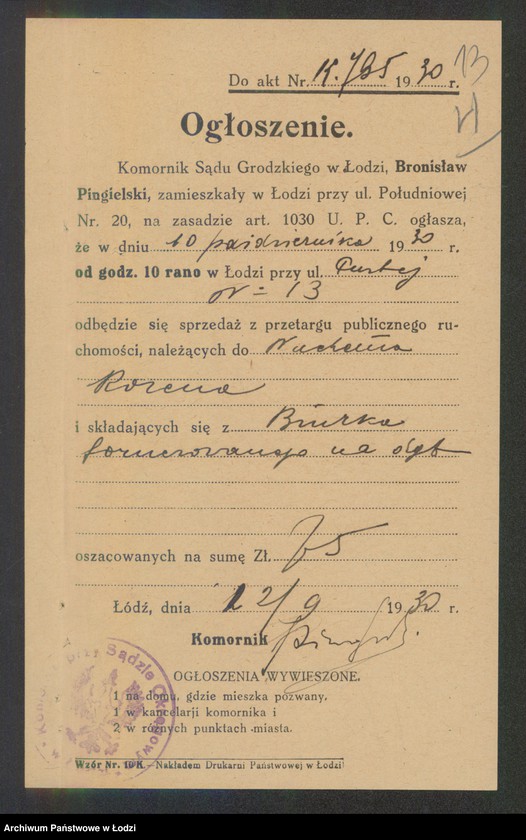 13
Do akt Nr. K. 735 1930 r.
Ogłoszenie.
Komornik Sądu Grodzkiego w Łodzi, Bronisław
Pingielski, zamieszkały w Łodzi przy ul. Południowej
Nr. 20, na zasadzie art. 1030 U. P. C. ogłasza,
że w dniu 10 października 1930 r.
od godz. 10 rano w Łodzi przy ul. Pustej
№ 13
odbędzie się sprzedaż z przetargu publicznego ru-
chomości, należących do Nachema
Rozena
i składających się z Biurka
fornierowanego na dąb
oszacowanych na sumę Zł. 75
Łódź, dnia 12/9 1930 r.
Komornik
OGŁOSZENIA WYWIESZONE.
1 na domu, gdzie mieszka pozwany,
1 w kancelarji komornika i
2 w różnych punktach miasta.
Wzór Nr. 10 K.—Nakładem Drukarni Państwowej w Łodzi
przy Sądzie Okręgowym
Archiwum Państwowe w Łodzi